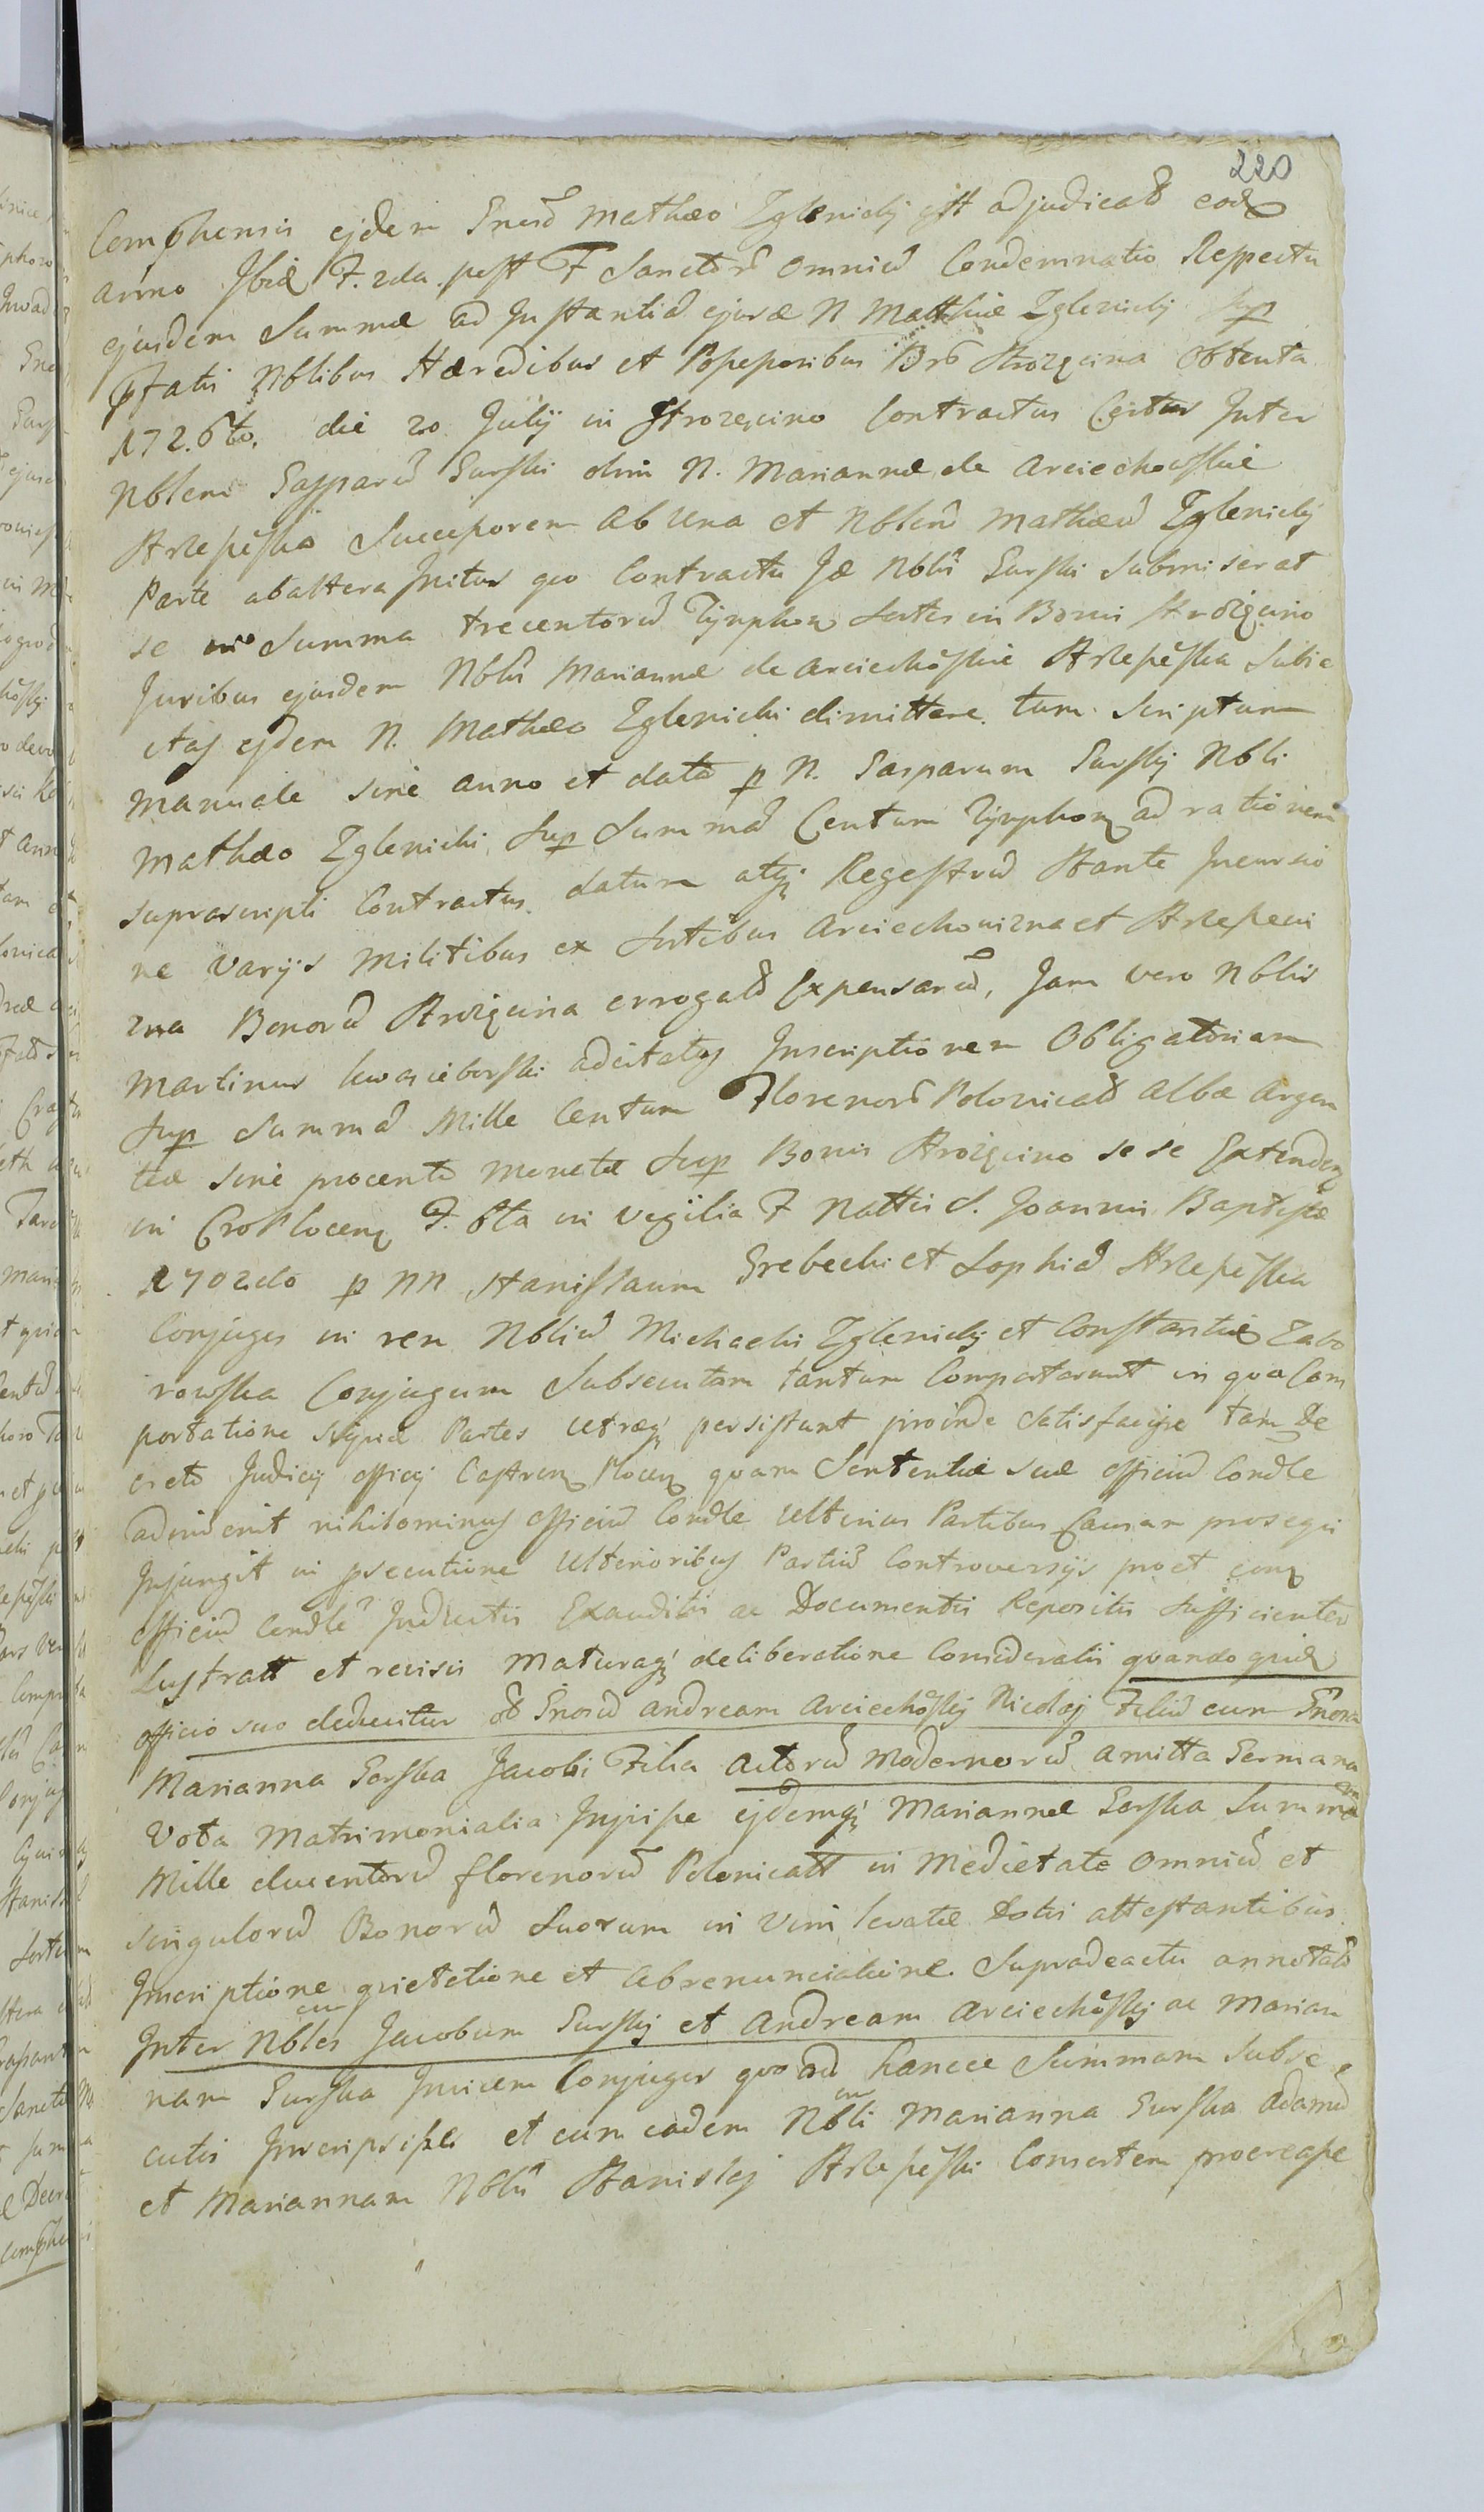 220
Comphensis ejdem Gnesd Mathæo Zglenicky est adjudicatt eodem
anno Ibid F. 2da post F Sanctord Omniud Condemnatio Respectu
ejusdem Summæ ad Instantiad ejusd N Matthiæ Zglenicky Sup
pfatis Nblibus Hæredibus et Possessoribus Bro Strozęcina obtenta
1726to. die 20 Julij in Strozęcino Contractus Inter
Nblem Gasparud Gurski olim N. Mariannæ de Arciechowskie
Strzeszeska Successorem ab Una et Nblem Mathæud Zglenicky
Parte ab altera Initus quo Contractu Id Nblis Gurski Submiserat
se in Summa trecentorud Tynphon Sortes in Bonis Strozęcino
Juribus ejusdem Nblis Mariannæ de Arciechoskie Strzeszeska Subie
ctas ejdem N. Mathæo Zglenicki dimittere. tum Scriptum
Manuale sine anno et data p N. Gasparum Gursky Nbli
Mathæo Zglenicki Sup Summad Centum Tynphon ad rationem
suprascripti Contractus datum atq Regestrud Stante Incursio
ne varijs Militibus ex Sortibus Arciechowizna et Strzeszewi
zna Bonorud Strozęcina errogatd Expensarud, Jam vero Nblis
Martinus Kwasieborski adcitatus Inscriptionem Obligatoriam
Sup Summad Mille Centum Florenord Polonicad Albæ Argen
teæ sine procento Monetæ Sup Bonis Strozęcino se se Extenden
in Cro Plocen F. 6ta in Vigilia F Nattis S. Joannis Baptistæ
1702do p NN Stanislaum Grebecki et Sophiad Strzeszeska
Conjuges in rem Nbliud Michaelis Zglenicky et Constantiæ Zabo
rowska Conjugum Subsecutam tantum Comportarunt in qua Com
portatione Partes Utræq persistunt proinde Satisfacisse tam De
creto Judicij officij Castren Plocen quam Sententiæ suæ officiud Condle
adinvenit nihilominus officiud Condle Ulterius Partibus Causam prosequi
Injungit in psecutione Ulterioribus Partiud Controversijs proet
officiud Condle Inductis Exauditis ac Documentis Repositis Sufficienter
Lustratt et revisis Maturaq deliberatione Consideratis quandoquid
officio suo deducitur Gnosud Andream Arciechosky Nicolaj Filiud cum Gnosa
Marianna Gorska Jacobi Filia Actorud Modernorud Amitta Germana
Vota Matrimonialia Injisse ejdemq Mariannæ Gorska Summa
Mille ducentorud florenorud Polonicatt in Medietate Omniud et
Singulorud Bonorud Suorum in Vim levatæ Dotis attestantibus
Inscriptione quietatione et abrenunciatione. Supradeactu annotatd
Inter Nbles Jacobum Gursky et Andream Arciechosky ac Marian
nam Gurska Invicem Conjuges quoad hancce Summam Subse
cutis Inscripsisse et cum eadem Nbli Marianna Gurska Adamud
et Mariannam Nblis Stanislaj Strzeszeski Consortem procreasse